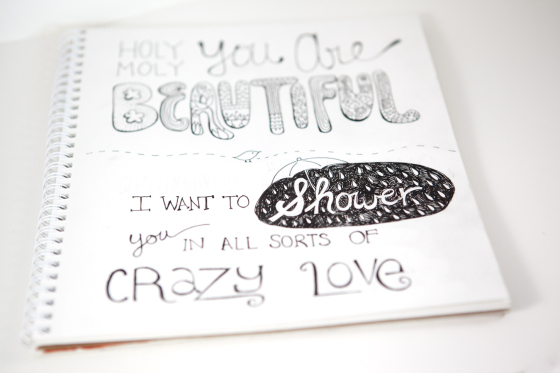 HOLY MOLY you Are
BEAUTIFUL
I WANT TO Shower
you IN ALL SORTS OF
CRAZY LOVE